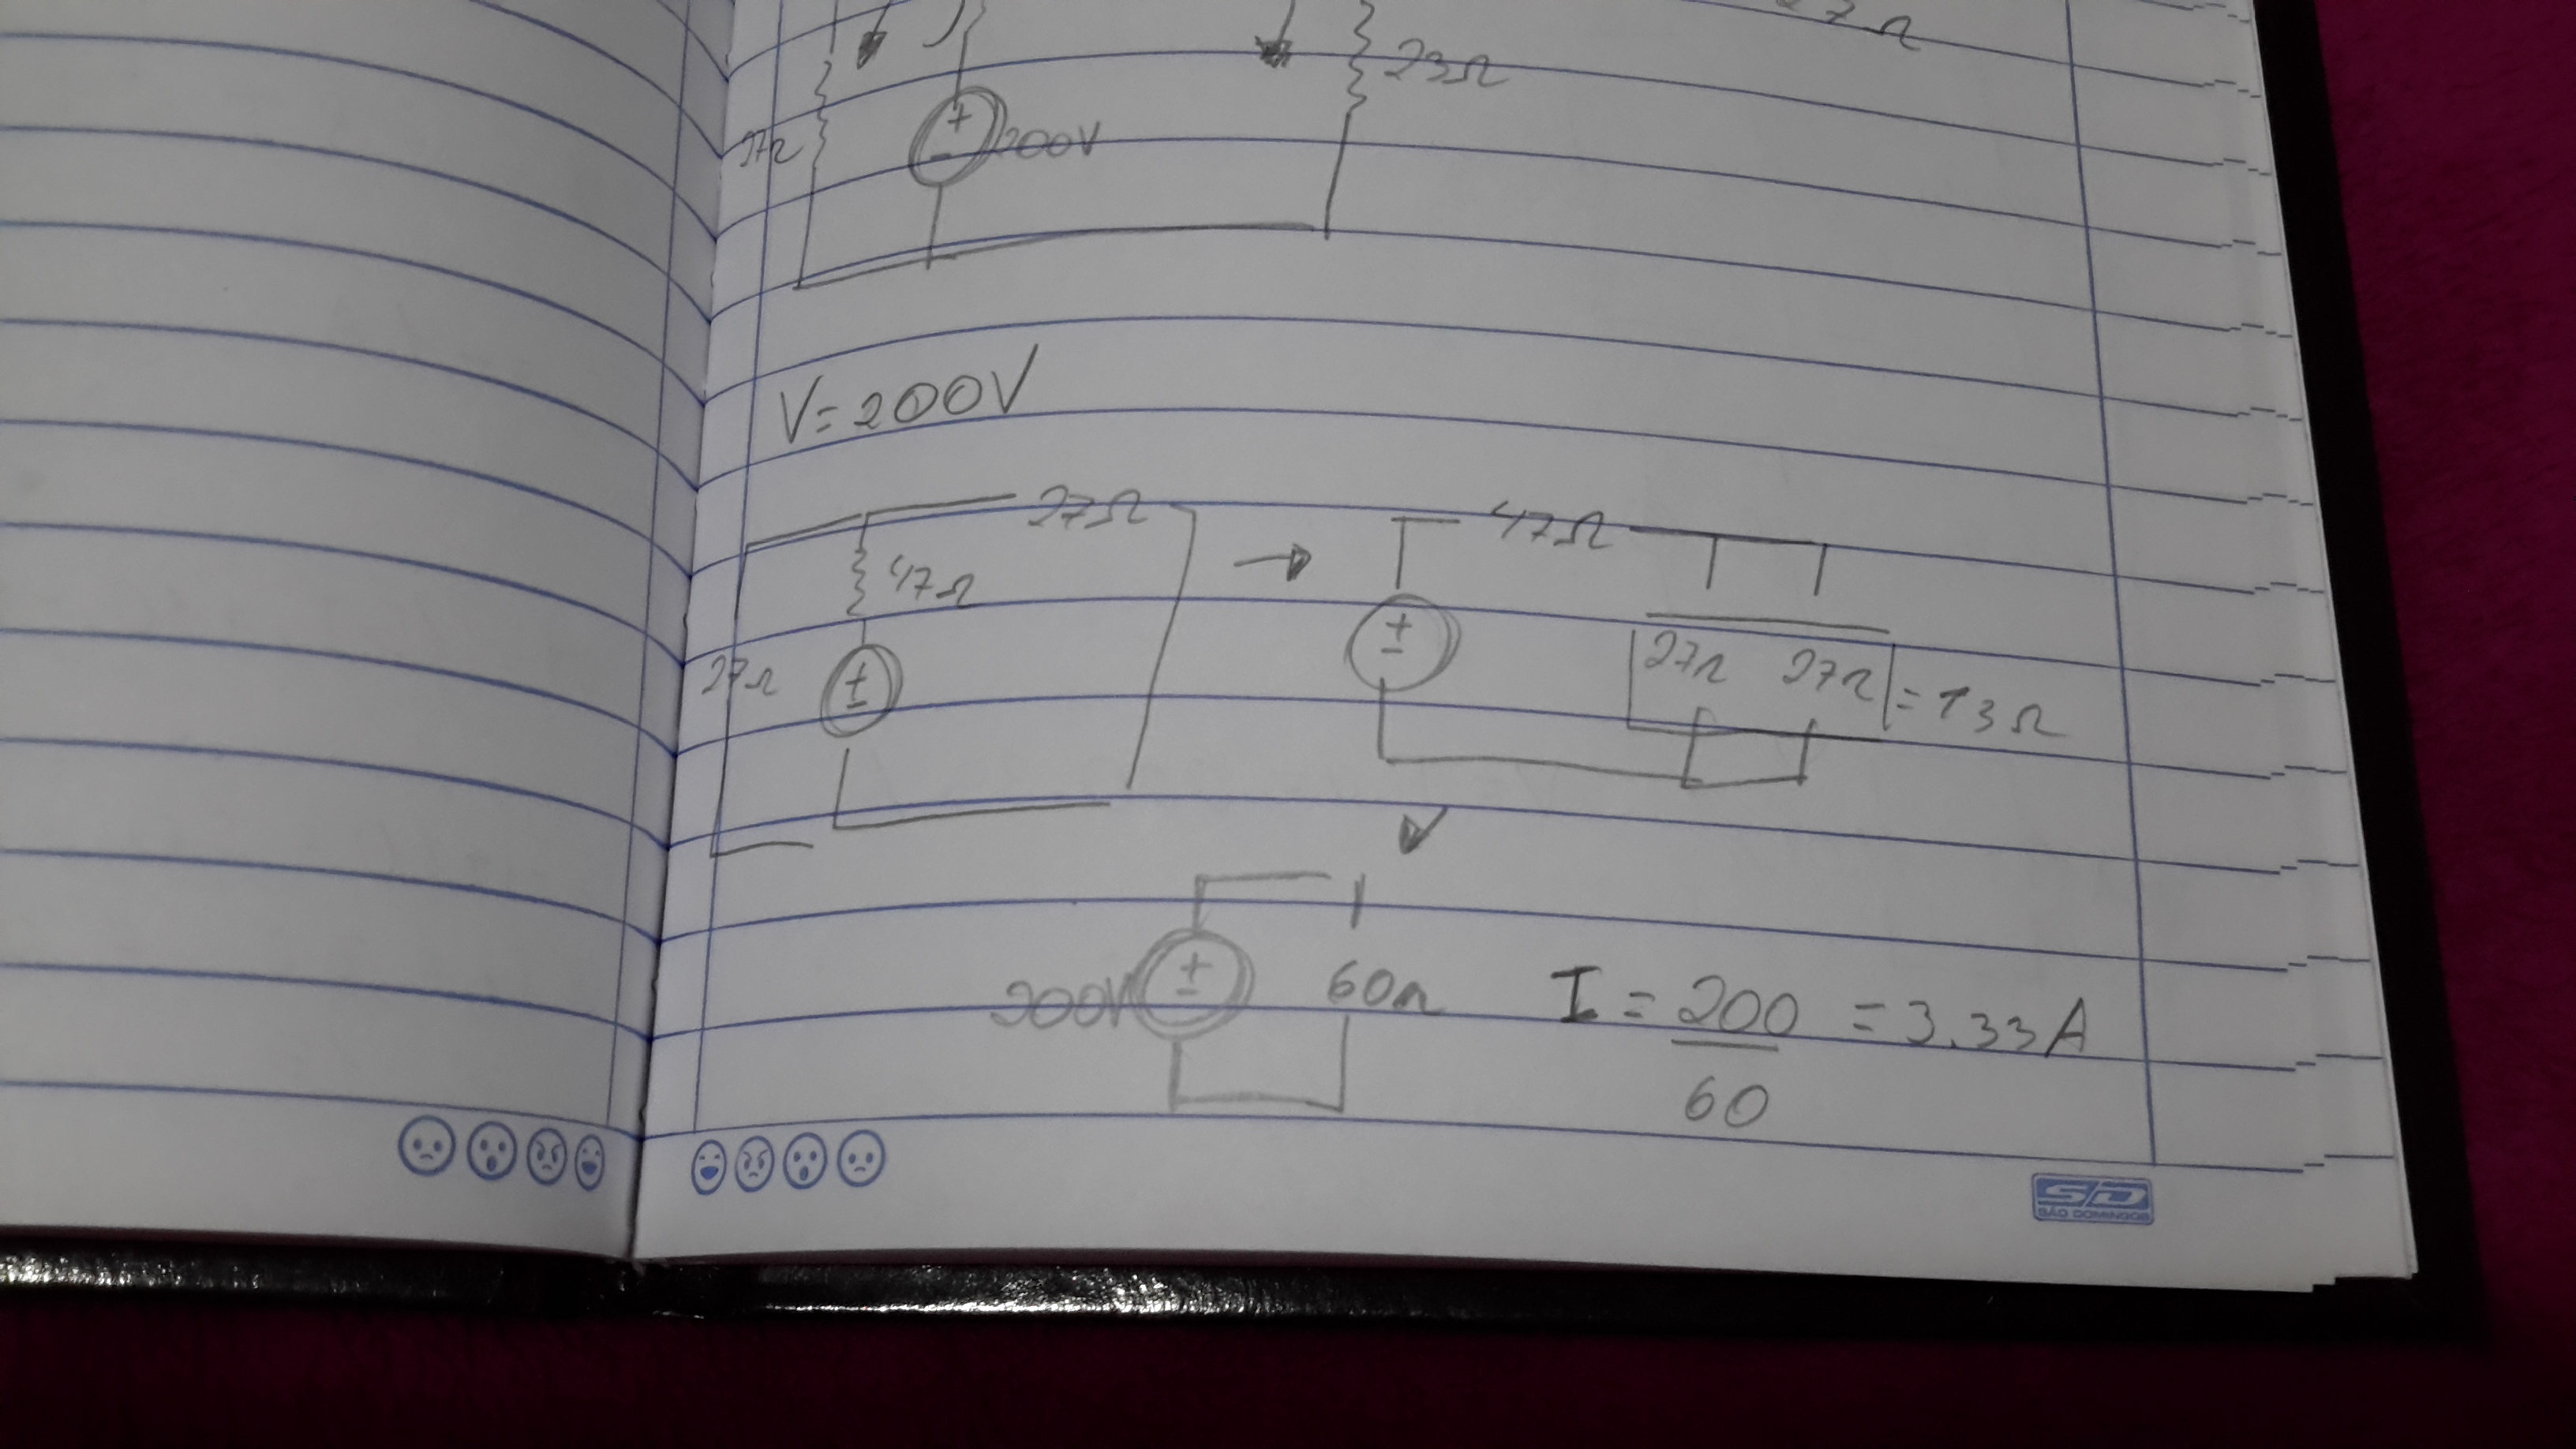 27Ω
23Ω
200V
V=200V
27Ω
47Ω
47Ω
27Ω
27Ω 27Ω = 13Ω
200V
60Ω
I = 200 = 3.33A
60
SD
SÃO DOMINGOS